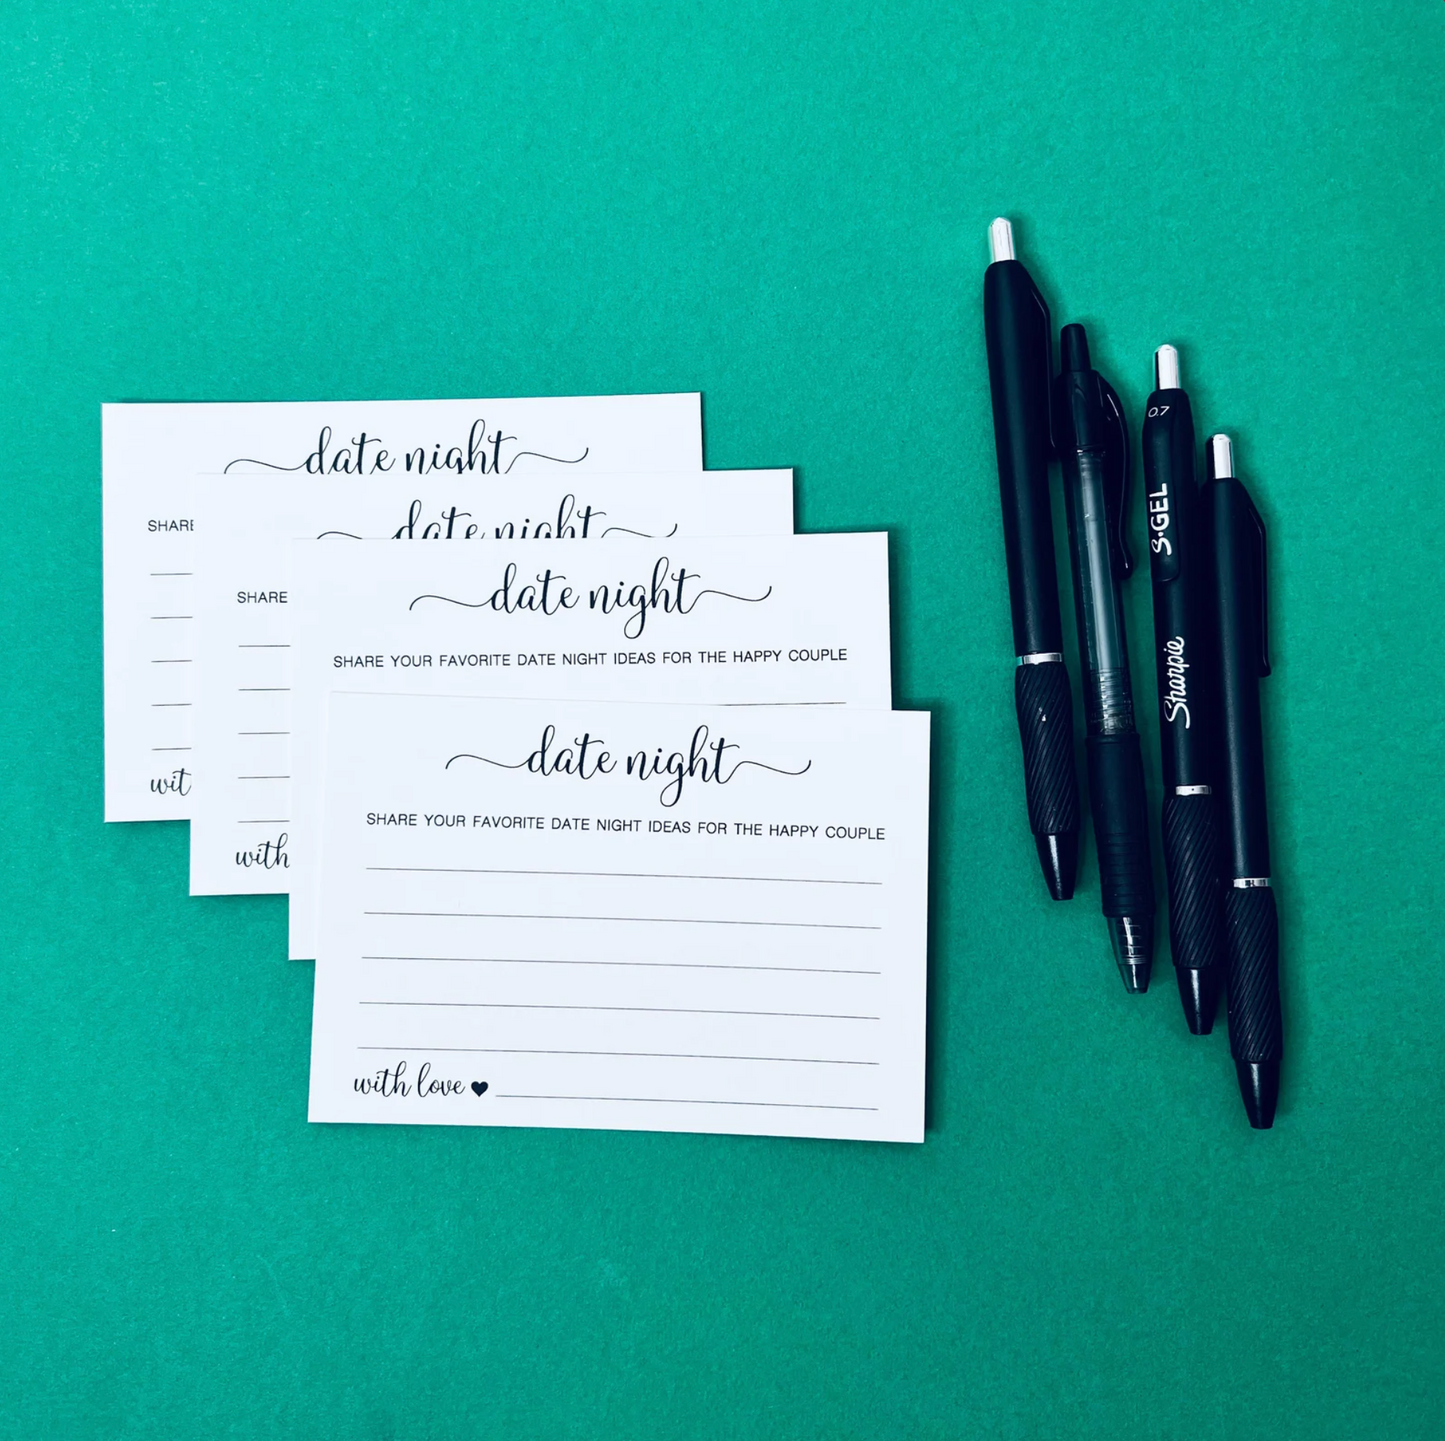 date night
SHARE
wit
date night
SHARE
with
date night
SHARE YOUR FAVORITE DATE NIGHT IDEAS FOR THE HAPPY COUPLE
date night
SHARE YOUR FAVORITE DATE NIGHT IDEAS FOR THE HAPPY COUPLE
with love
0.7
S·GEL
Sharpie